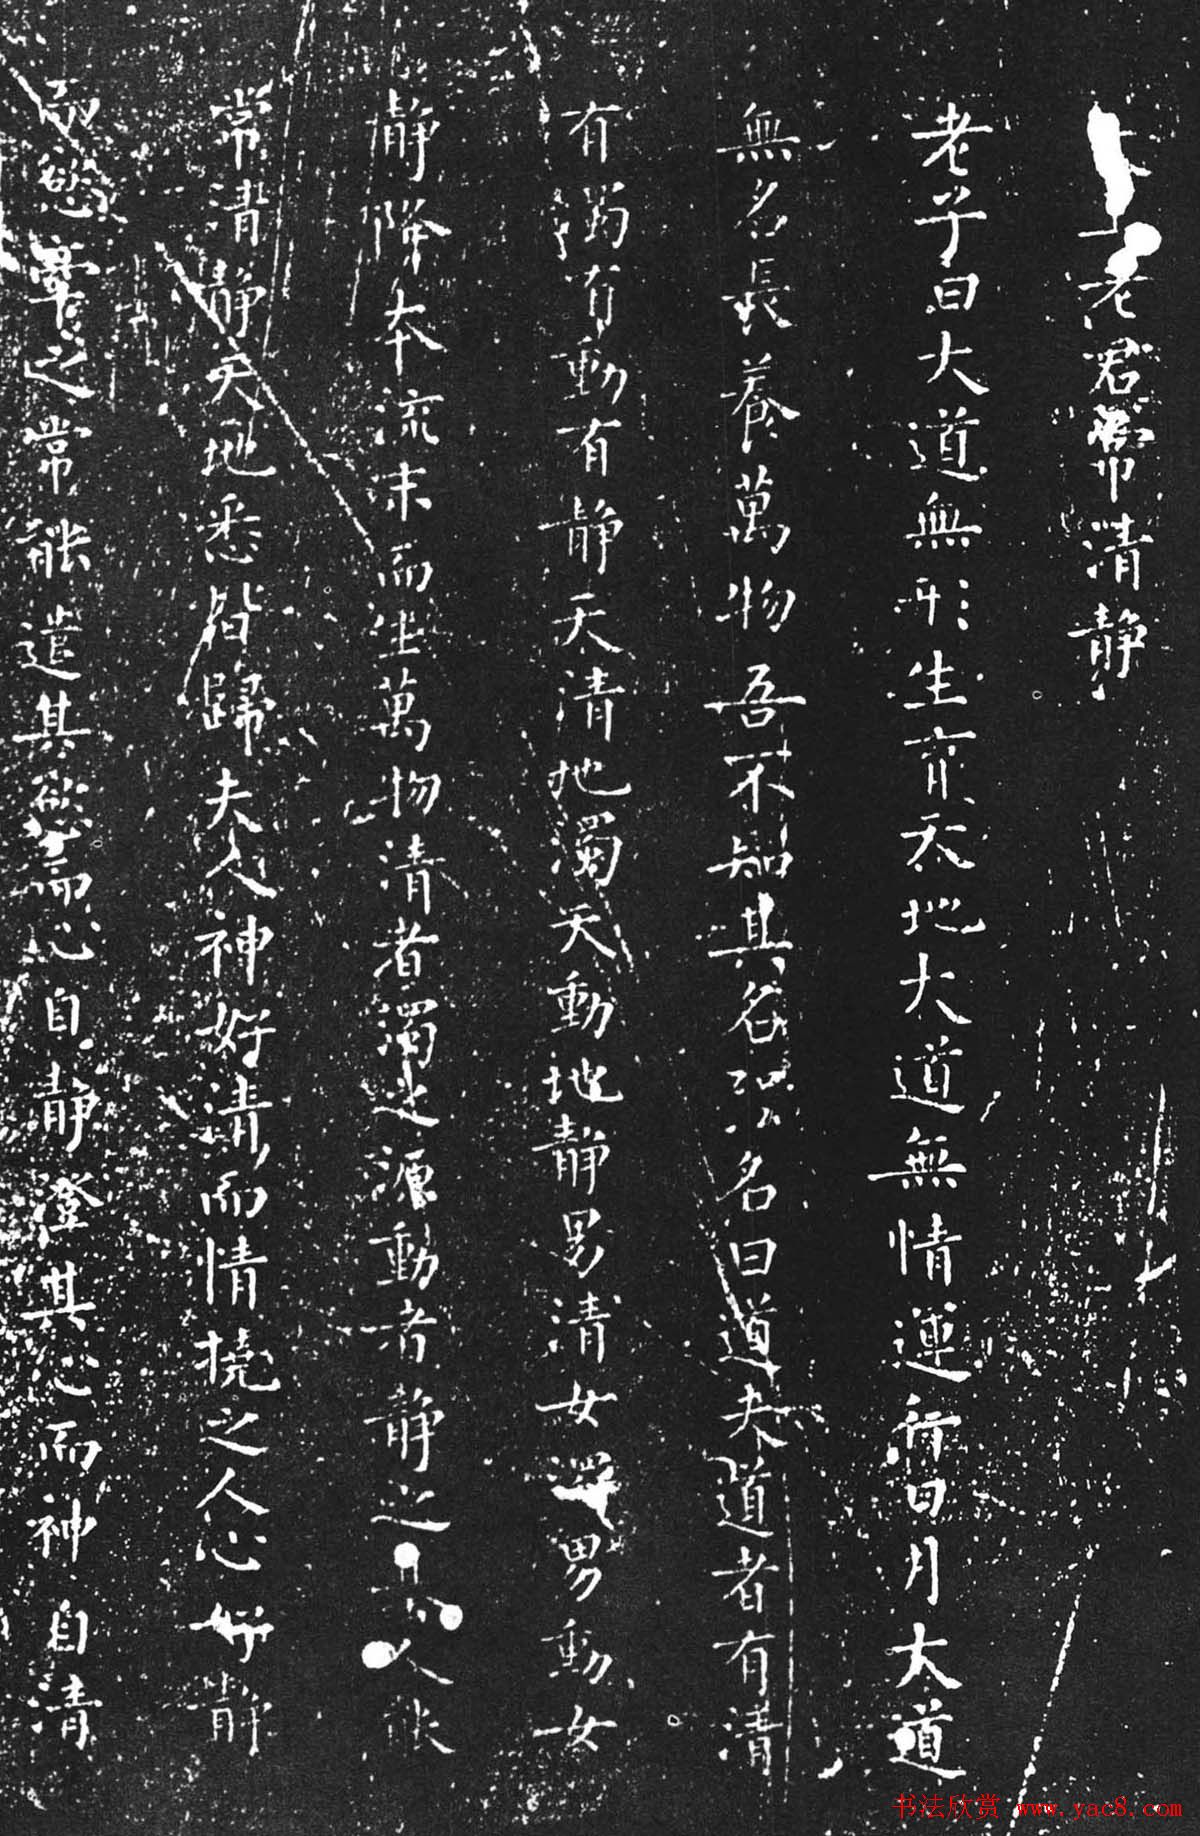 上老君常清静
老子曰大道無形生育天地大道無情運行日月大道
無名長養萬物吾不知其名强名曰道夫道者有清
有濁有動有静天清地濁天動地静男清女濁男動女
静降本流末而生萬物清者濁之源動者静之基人能
常清静天地悉皆歸夫人神好清而情撓之人心好静
而慾牽之常能遣其慾而心自静澄其心而神自清
书法欣赏 www.yac8.com